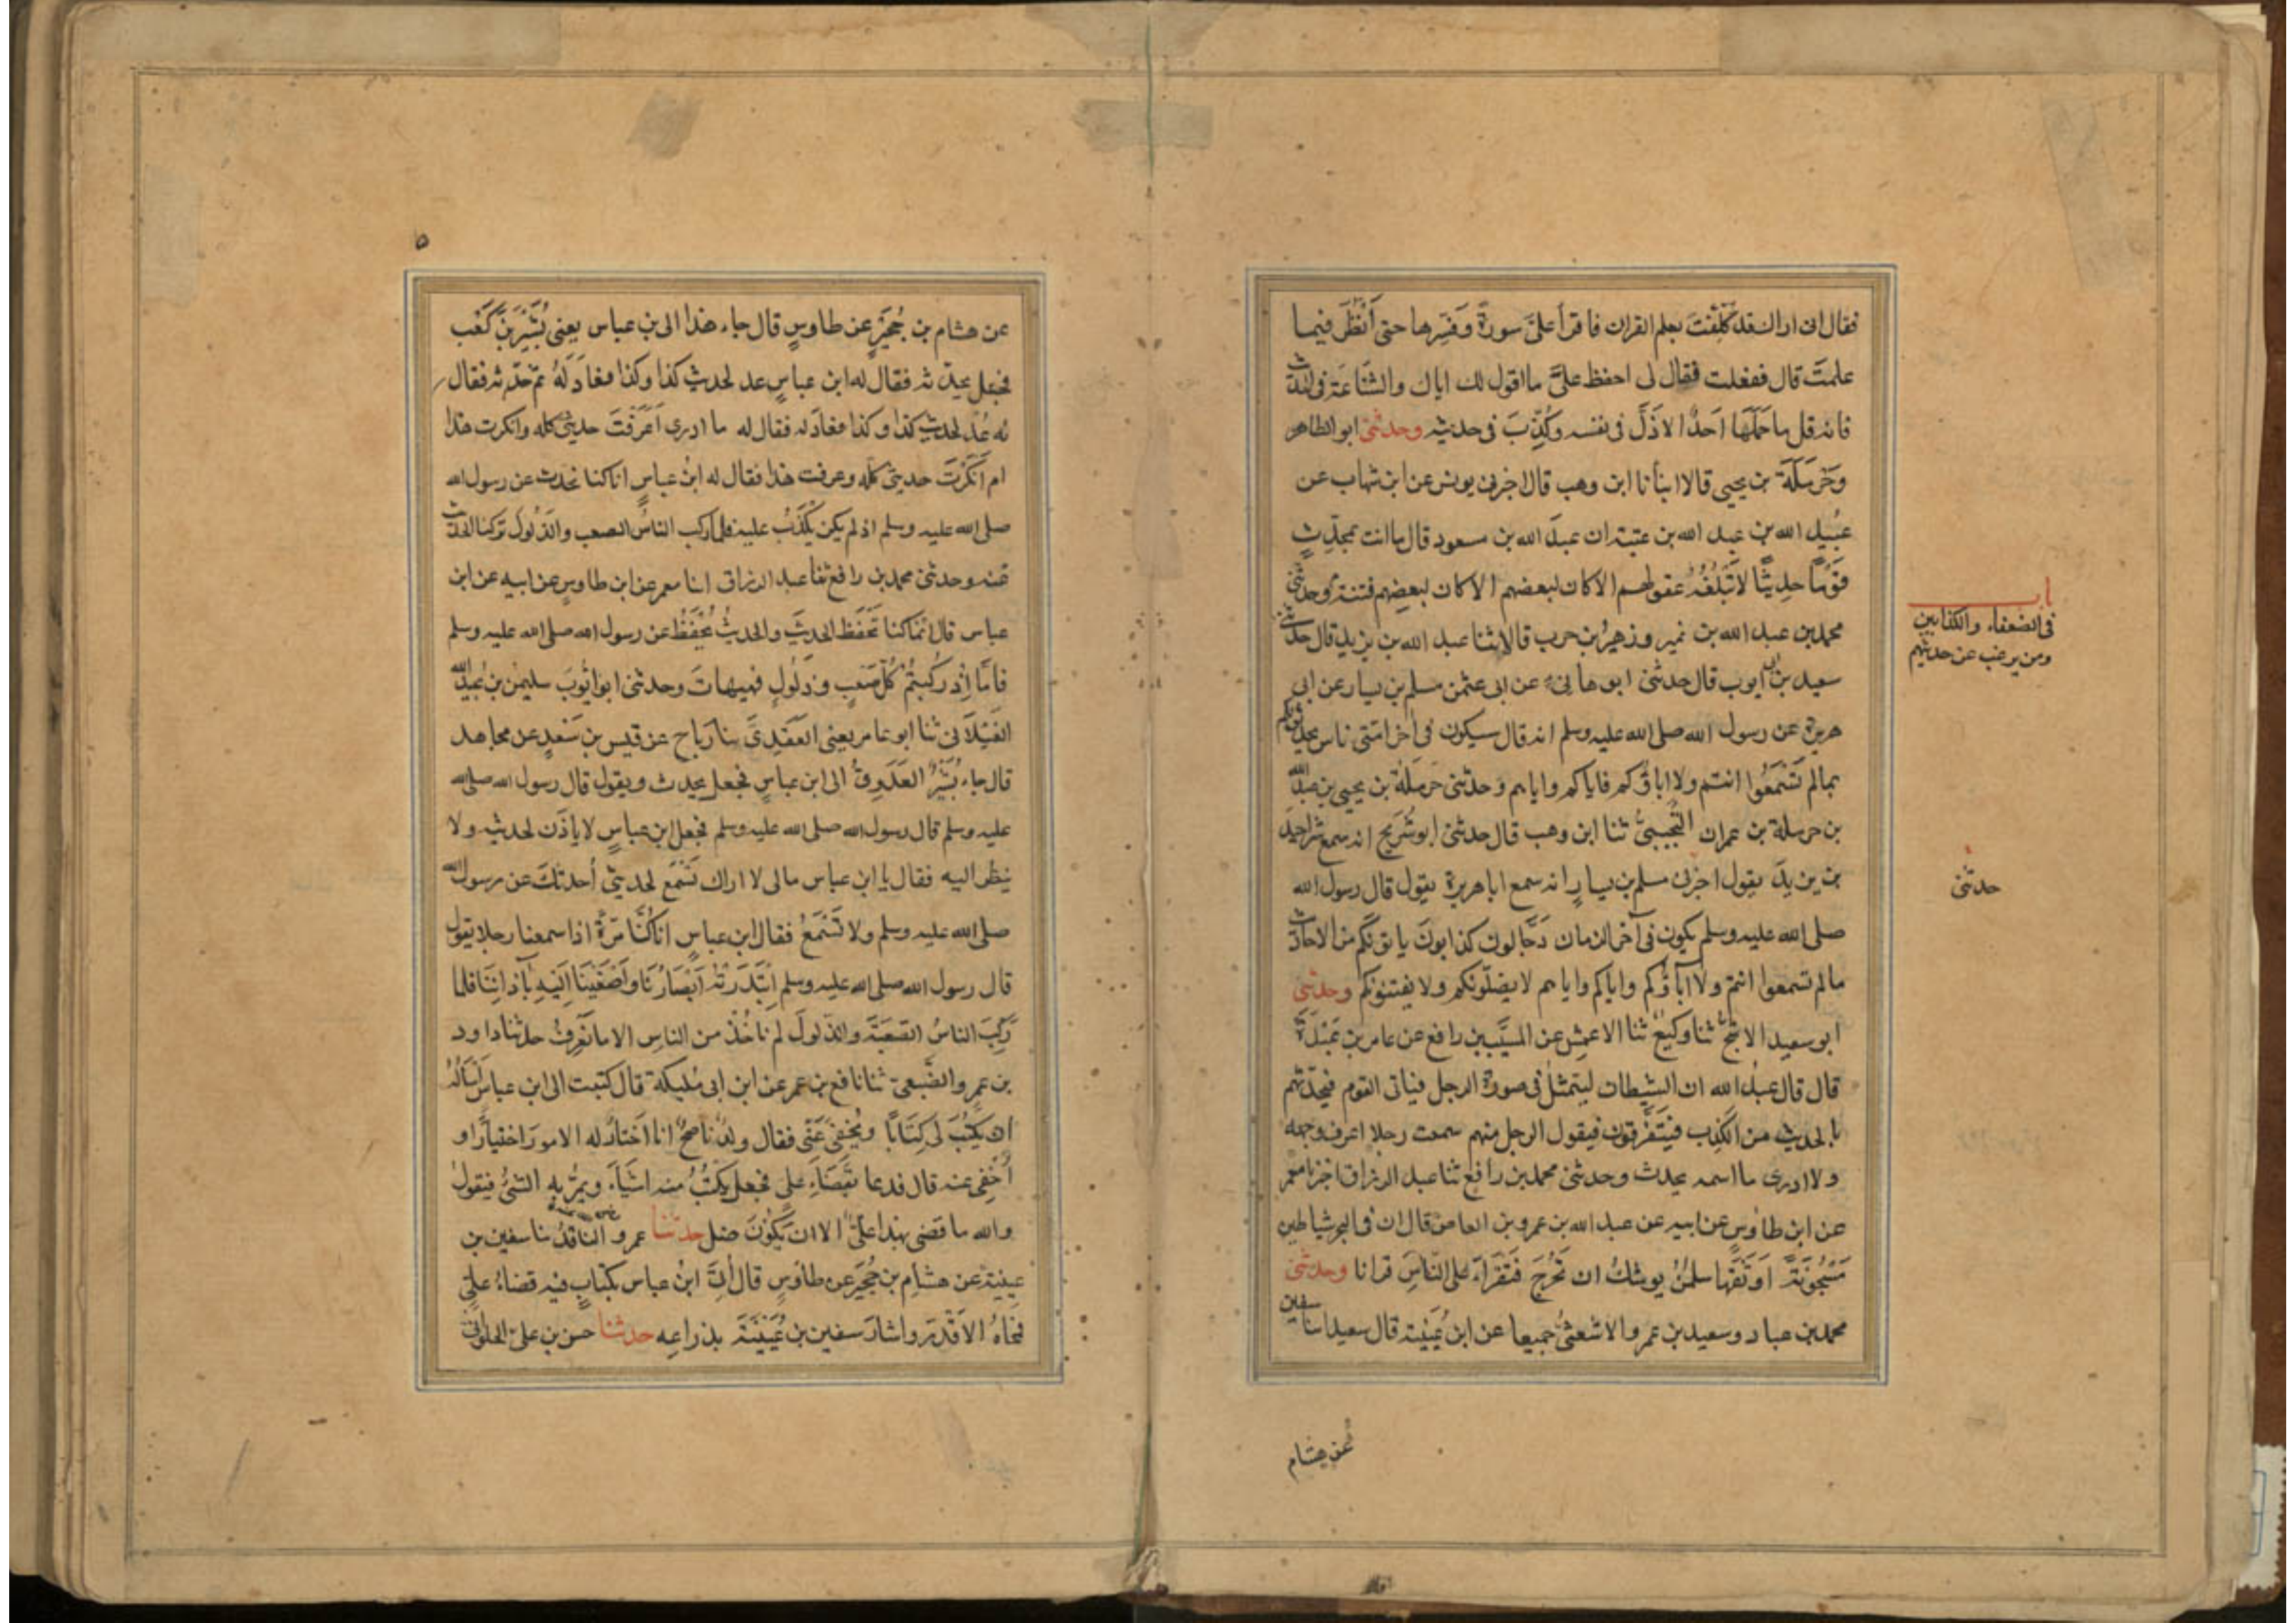 فقال انى اراك قد كلفت بعلم القران فاقرأ علىّ سورة وفسرها حتى أنظر فيما
علمتَ قال ففعلت فقال لى احفظ علىّ مااقول لك اياك والشناعة فى الحديث
فانه قل ماحملها احدٌ الا ذلّ فى نفسه وكُذِّبَ فى حديثه وحدثنى ابو الطاهر
وحرملة بن يحيى قالا انبأنا ابن وهب قال اخبرنى يونس عن ابن شهاب عن
عبيد الله بن عبد الله بن عتبة ان عبد الله بن مسعود قال ماانت بمحدِّثٍ
قومًا حديثًا لا تبلغه عقولهم الا كان لبعضهم الا كان لبعضهم فتنة وحدثنى
محمد بن عبد الله بن نمير وزهيرُ بن حرب قالا ثنا عبد الله بن يزيد قال حدثنى
سعيد بن ابى ايوب قال حدثنى ابو هانىء عن ابى عثمن مسلم بن يسار عن ابى
هريرة عن رسول الله صلى الله عليه وسلم انه قال سيكون فى اخر امتى ناس يحدثونكم
بمالم تسمعوا انتم ولا اباؤكم فاياكم واياهم وحدثنى حرملة بن يحيى بن عبد الله
بن حرملة بن عمران التجيبىُّ ثنا ابن وهب قال حدثنى ابو شريح انه سمع شراحيل
بن يزيد يقول اخبرنى مسلم بن يسارٍ انه سمع اباهريرة يقول قال رسول الله
صلى الله عليه وسلم يكون فى آخر الزمان دجالون كذابون ياتونكم من الاحاديث
مالم تسمعوا انتم ولا اباؤكم واياكم واياهم لا يضلونكم ولا يفتنونكم وحدثنى
ابو سعيد الاشجّ ثنا وكيعٌ ثنا الاعمش عن المسيّب بن رافع عن عامر بن عبدة
قال قال عبدُ الله ان الشيطان ليتمثلُ فى صورة الرجل فياتى القوم فيحدّثهم
بالحديث من الكذب فيتفرقون فيقول الرجل منهم سمعت رجلا اعرف وجهه
ولا ادرى مااسمه يحدث وحدثنى محمد بن رافع ثنا عبد الرزاق اخبرنا معمر
عن ابن طاوس عن ابيه عن عبد الله بن عمرو بن العاص قال ان فى البحر شياطين
مسجونةً اوثقها سليمنُ يوشكُ ان تخرجَ فتقرأ على الناسِ قرانا وحدثنى
محمد بن عباد وسعيد بن عمرو الاشعثىُّ جميعا عن ابن عُيينة قال سعيد انا سفين
باب
فى الضعفاء والكذابين
ومن يرغب عن حديثهم
حدثنى
عن هشام
٥
عن هشام بن حُجيرٍ عن طاوسٍ قال جاء هذا الى بن عباس يعنى بُشيرَ بنَ كعب
فجعل يحدّثه فقال له ابن عباسٍ عد لحديث كذا وكذا فعادَ لهُ ثم حدّثه فقال
له عُد لحديث كذا وكذا فعاد له فقال له ما ادرى أعرفتَ حديثى كله وانكرت هذا
ام انكرتَ حديثى كله وعرفت هذا فقال له ابنُ عباسٍ انا كنا نحدث عن رسول الله
صلى الله عليه وسلم اذ لم يكن يُكذَبُ عليه فلما ركب الناسُ الصعب والذلول تركنا الحديث
عنه وحدثنى محمد بن رافع ثنا عبد الرزاق انا معمر عن ابن طاوسٍ عن ابيه عن ابن
عباس قال انما كنا نحفظ الحديثَ والحديثُ يُحفَظُ عن رسول الله صلى الله عليه وسلم
فامّا إذ ركبتمُ كُلّ صَعبٍ وذلولٍ فهيهاتَ وحدثنى ابو ايُّوبَ سليمٰن بن عُبيد الله
الغيلانىُّ ثنا ابو عامر يعنى العقدىَّ ثنا رباح عن قيس بن سعدٍ عن مجاهد
قال جاء بُشيرٌ العدَوىُّ الى ابن عباسٍ فجعل يحدث ويقول قال رسول الله صلى الله
عليه وسلم قال رسول الله صلى الله عليه وسلم فجعل ابن عباسٍ لا ياذَن لحديثه ولا
ينظر اليه فقال يا ابن عباس مالى لا اراك تسمع لحديثى أحدثكَ عن رسول الله
صلى الله عليه وسلم ولا تسمعُ فقال ابن عباسٍ انا كُنّا مرّةً اذا سمعنا رجلا يقول
قال رسول الله صلى الله عليه وسلم ابتدرتهُ ابصارُنا واصغينا اليه بآذاننا فلما
ركبَ الناسُ الصعبةَ والذلولَ لم ناخُذ من الناسِ الا ما نعرفُ حدثنا داود
بن عمرو الضّبىّ ثنا نافع بن عمر عن ابن ابى مُليكة قال كتبت الى ابن عباس أسألهُ
أن يكتُبَ لى كتابًا ويُخفى عنّى فقال ولدٌ ناصحٌ انا اختارُ له الامورَ اختيارًا و
أخفى عنه قال فدعا بقضاءِ علىٍ فجعل يكتُبُ منه اشياءَ ويمرّ به الشئُ فيقول
والله ما قضى بهذا علىّ الا ان يكونَ ضل حدثنا عمرو الناقدُ ثنا سفين بن
عيينة عن هشام بن حُجير عن طاوسٍ قال أُتىَ ابنُ عباس بكتابٍ فيه قضاءُ علىٍّ
فمحاهُ الا قدرَ واشار سفين بن عُيينةَ بذراعِه حدثنا حسن بن علىّ الحلوانىُّ